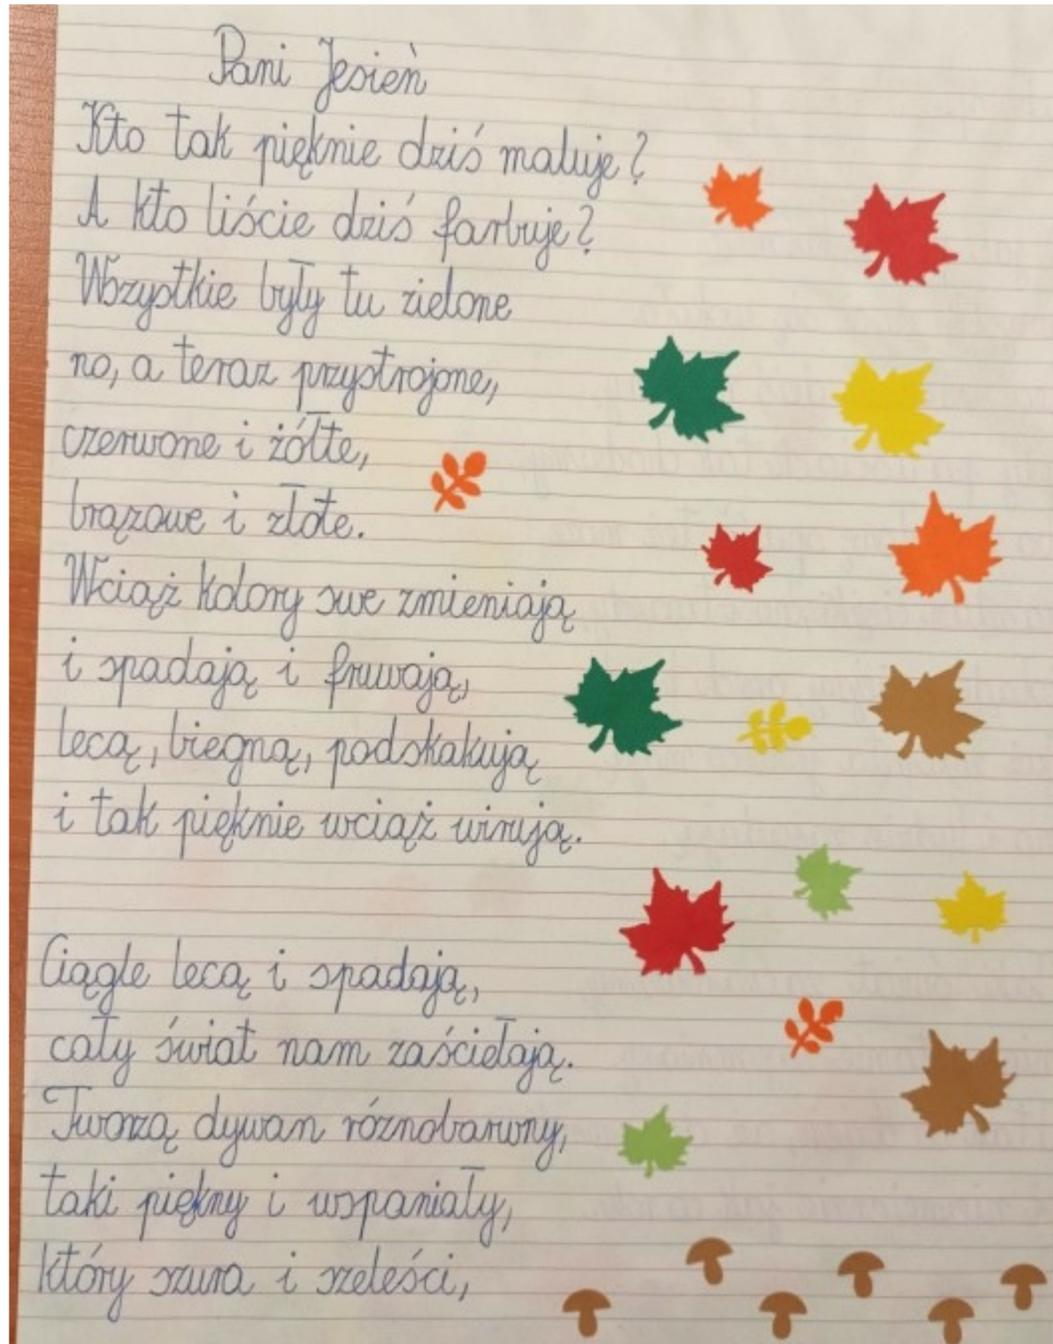 Pani Jesień
Kto tak pięknie dziś maluje?
A kto liście dziś farbuje?
Wszystkie były tu zielone
no, a teraz przystrojone,
czerwone i żółte,
brązowe i złote.
Wciąż kolory swe zmieniają
i spadają i fruwają,
lecą, biegną, podskakują
i tak pięknie wciąż wirują.
Ciągle lecą i spadają,
cały świat nam zaścielają.
Tworzą dywan różnobarwny,
taki piękny i wspaniały,
który szura i szeleści,